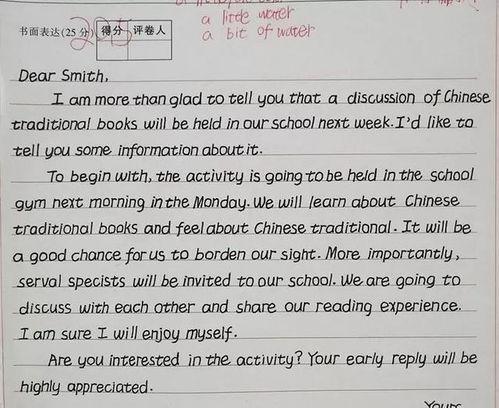 a little water
a bit of water
书面表达(25分) 得分 评卷人
Dear Smith,
I am more than glad to tell you that a discussion of Chinese
traditional books will be held in our school next week. I'd like to
tell you some information about it.
To begin with, the activity is going to be held in the school
gym next morning in the Monday. We will learn about Chinese
traditional books and feel about Chinese traditional. It will be
a good chance for us to borden our sight. More importantly,
serval specists will be invited to our school. We are going to
discuss with each other and share our reading experience.
I am sure I will enjoy myself.
Are you interested in the activity? Your early reply will be
highly appreciated.
Yours